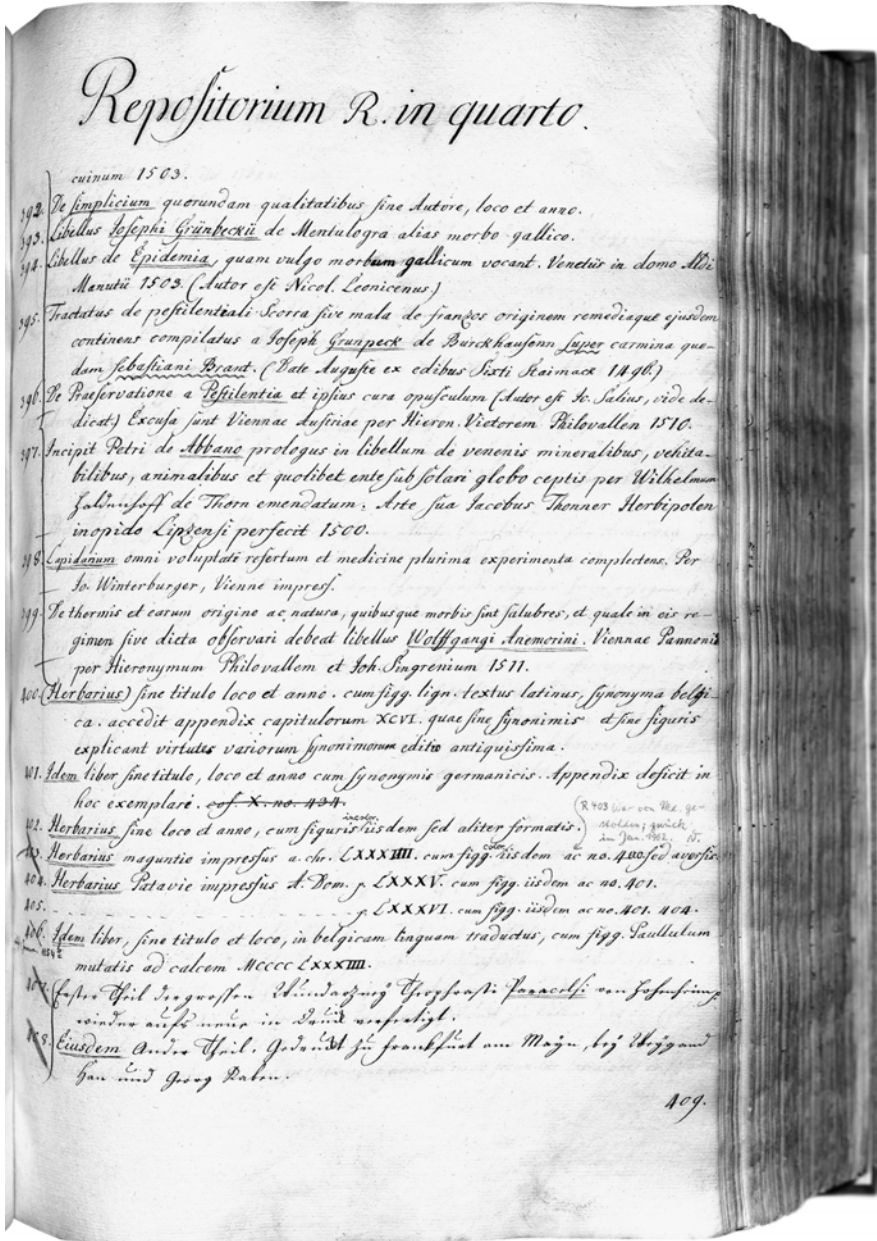 Repositorium R. in quarto.
cuinum 1503.
392. De simplicium quorundam qualitatibus sine Autore, loco et anno.
393. Libellus Josephi Grünbeckii de Mentulogra alias morbo gallico.
394. Libellus de Epidemia, quam vulgo morbum gallicum vocant. Venetiis in domo Aldi
Manutii 1503. (Autor est Nicol. Leonicenus.)
395. Tractatus de pestilentiali Scorra sive mala de franzos originem remediaque ejusdem
continens compilatus a Joseph Grunpeck de Burckhausenn super carmina que-
dam Sebastiani Brant. (Date Auguste ex edibus Sixti 1496.)
396. De Praeservatione a Pestilentia et ipsius cura opusculum (Autor est Jo. Salius, vide de-
dicat.) Excusa sunt Viennae Austriae per Hieron. Victorem Philovallen 1510.
397. Incipit Petri de Abbano prologus in libellum de venenis mineralibus, vehita-
bilibus, animalibus et quolibet ente sub solari globo ceptis per Wilhelmum
Haldenhoff de Thorn emendatum. Arte sua Jacobus Thonner Herbipolen
in opido Lipzensi perfecit 1500.
398. Lapidarium omni voluptati refertum et medicine plurima experimenta complectens. Per
Jo. Winterburger, Vienne impress.
399. De thermis et earum origine ac natura, quibusque morbis sint salubres, et quale in eis re-
gimen sive dieta observari debeat libellus Wolffgangi Anemorini. Viennae Pannoniae
per Hieronymum Philovallem et Joh. Singrenium 1511.
400. (Herbarius) sine titulo loco et anno. cum figg. lign. textus latinus, synonyma belgi-
ca. accedit appendix capitulorum XCVI. quae sine synonimis et sine figuris
explicant virtutes variorum synonimorum editio antiquissima.
401. Idem liber sine titulo, loco et anno cum synonymis germanicis. Appendix deficit in
hoc exemplari. cof. X. no. 434.
402. Herbarius sine loco et anno, cum figuris incolor. iisdem sed aliter formatis.
(R 403 war von Med. ge-
stohlen; zurück
im Jan. 1952.
403. Herbarius maguntie impressus a. chr. LXXXIIII. cum figg. color. iisdem ac no. 400 sed aversis
404. Herbarius Patavie impressus A. Dom. p LXXXV. cum figg. iisdem ac no. 401.
405. - - - - - - - - p LXXXVI. cum figg. iisdem ac no. 401. 404.
406. Idem liber, sine titulo et loco, in belgicam linguam traductus, cum figg. Paullulum
mutatis ad calcem MCCCC LXXXIIII.
407. Erster Theil der grossen Wundarzney Theophrasti Paracelsi von Hohenheim,
wieder aufs neue in Druck verfertigt.
408. Eiusdem Ander Theil. Gedruckt zu Frankfurt am Mayn, bey Weygand
Han und Georg Raben.
409.